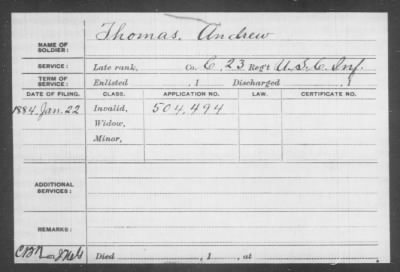 NAME OF SOLDIER: Thomas, Andrew
SERVICE: Late rank, Co. C, 23 Reg't U.S.C. Inf.
TERM OF SERVICE: Enlisted , 1 Discharged , 1
DATE OF FILING. CLASS. APPLICATION NO. LAW. CERTIFICATE NO.
1884 Jan. 22 Invalid, 504,494
Widow,
Minor,
ADDITIONAL SERVICES:
REMARKS:
Died , 1 , at